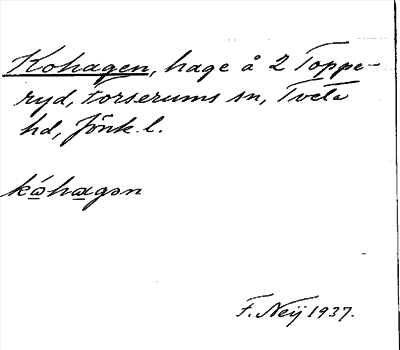 Kohagen, hage å 2 Toppe-
ryd, Forserums sn, Tveta
hd, Jönk. l.
kóhagən
F. Neij 1937.